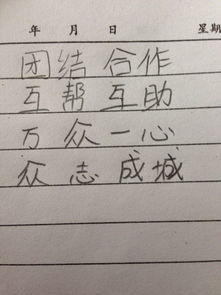 年 月 日 星期
团结合作
互帮互助
万众一心
众志成城